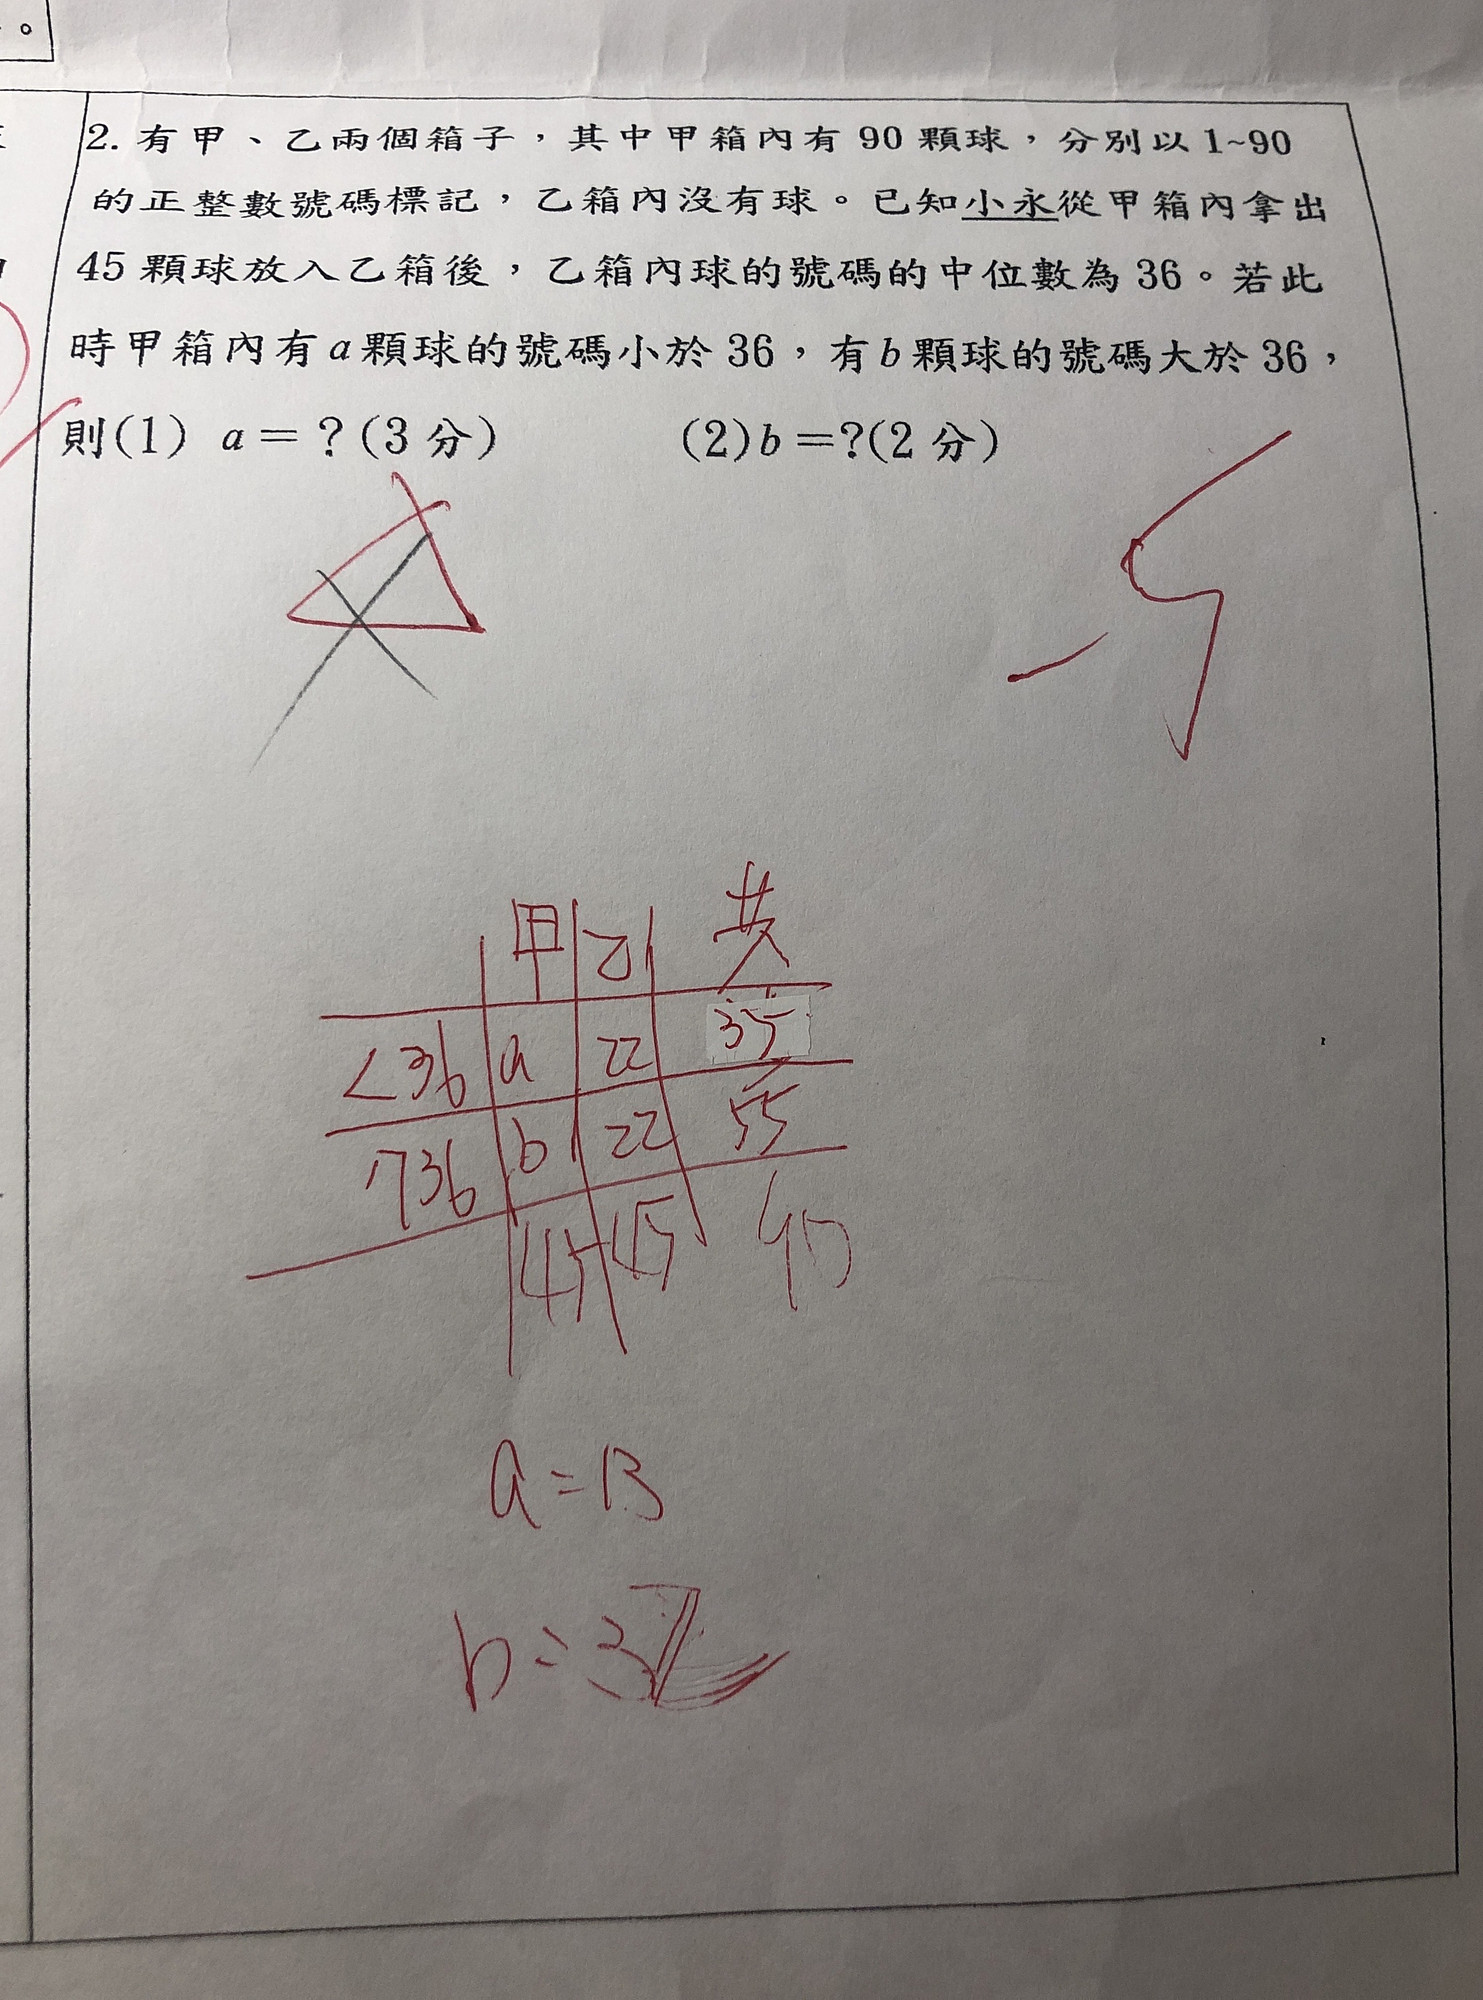 。
2. 有甲、乙兩個箱子，其中甲箱內有 90 顆球，分別以 1~90
的正整數號碼標記，乙箱內沒有球。已知小永從甲箱內拿出
45 顆球放入乙箱後，乙箱內球的號碼的中位數為 36。若此
時甲箱內有 a 顆球的號碼小於 36，有 b 顆球的號碼大於 36，
則(1) a＝？(3 分) (2) b＝?(2 分)
甲 乙 共
<36 a 22 35
>36 b 22 55
45 45 90
a=13